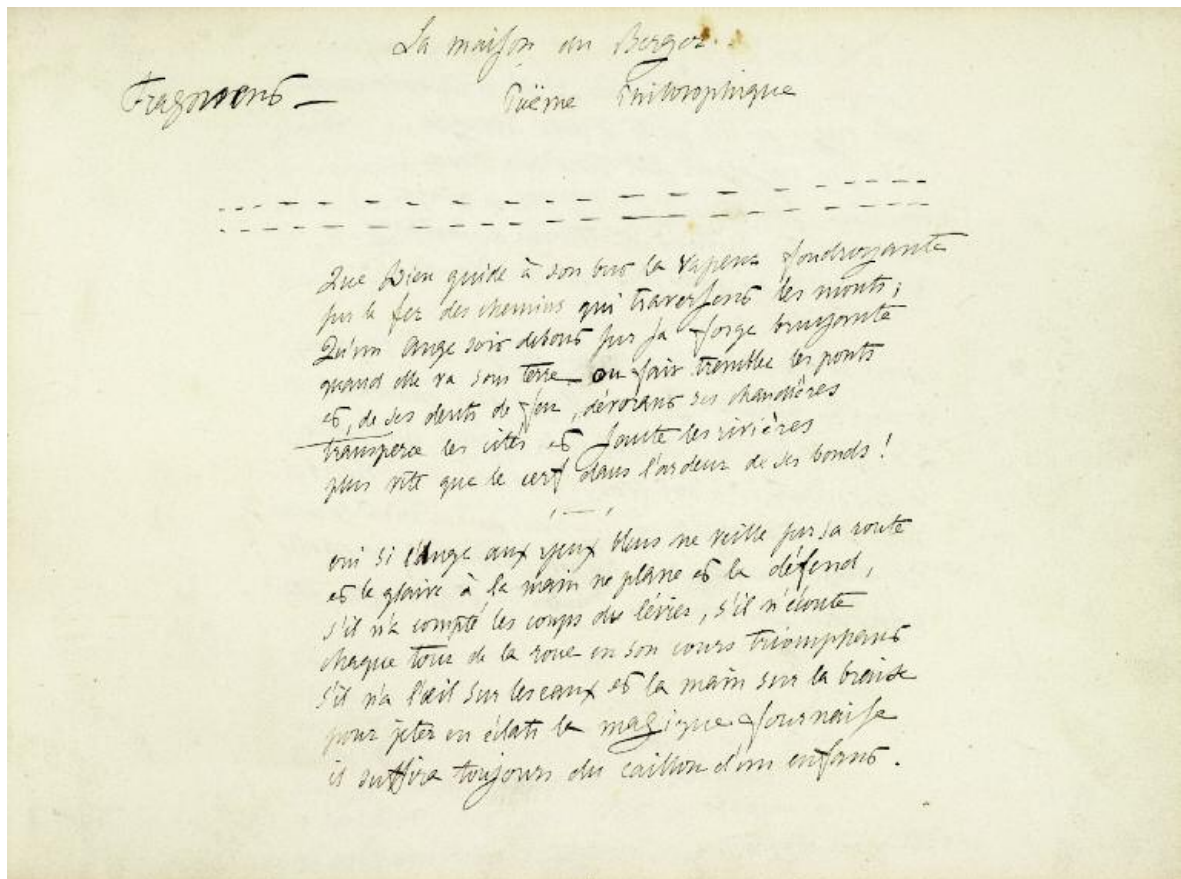 La maison du Berger.
Fragmens — Poëme Philosophique
Que Dieu guide à son but la vapeur foudroyante
sur le fer des chemins qui traversent les monts ;
Qu'un Ange soit debout sur sa forge bruyante
quand elle va sous terre ou fait trembler les ponts
et, de ses dents de feu, dévorant ses chaudières
transperce les cités et saute les rivières
plus vite que le cerf dans l'ardeur de ses bonds !
oui si l'Ange aux yeux bleus ne veille sur sa route
et le glaive à la main ne plane et la défend,
s'il n'a compté les coups du lévier, s'il n'écoute
chaque tour de la roue en son cours triomphant
s'il n'a l'œil sur les eaux et la main sur la braise
pour jeter en éclats la magique fournaise
il suffira toujours du caillou d'un enfant.